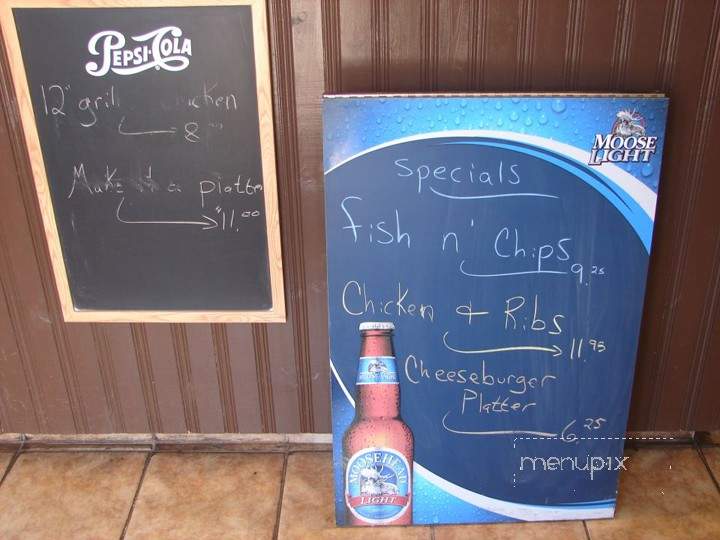 PEPSI-COLA
12" grill chicken
8.00
Make it a platter
$11.00
MOOSE
LIGHT
Specials
fish n' Chips
9.25
Chicken & Ribs
11.95
Cheeseburger
Platter
6.25
MOOSEHEAD
LIGHT
menupix